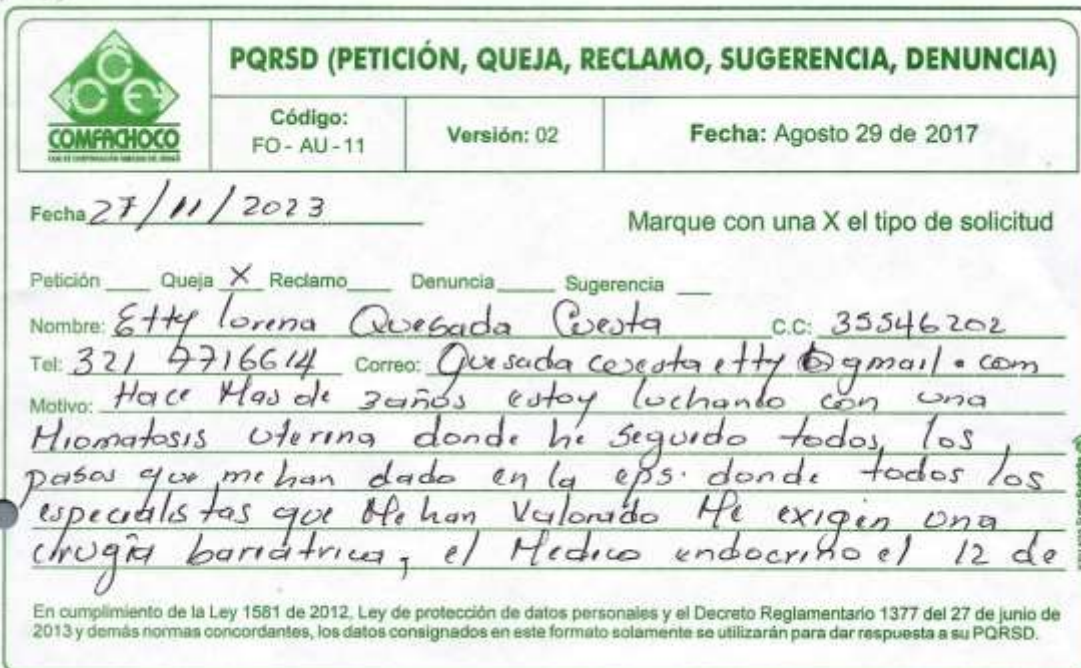 PQRSD (PETICIÓN, QUEJA, RECLAMO, SUGERENCIA, DENUNCIA)
COMFACHOCO
Código:
FO - AU - 11
Versión: 02
Fecha: Agosto 29 de 2017
Fecha 27/11/2023
Marque con una X el tipo de solicitud
Petición ____ Queja X Reclamo ____ Denuncia ____ Sugerencia ____
Nombre: Etty lorena Quesada Cuesta C.C: 35546202
Tel: 321 7716614 Correo: Quesada cuesta etty @gmail.com
Motivo: Hace Mas de 3años estoy luchando con una
Miomatosis uterina donde he seguido todos los
pasos que me han dado en la eps. donde todos los
especialistas que Me han Valorado Me exigen una
cirugía bariatrica, el Medico endocrino el 12 de
En cumplimiento de la Ley 1581 de 2012, Ley de protección de datos personales y el Decreto Reglamentario 1377 del 27 de junio de
2013 y demás normas concordantes, los datos consignados en este formato solamente se utilizarán para dar respuesta a su PQRSD.